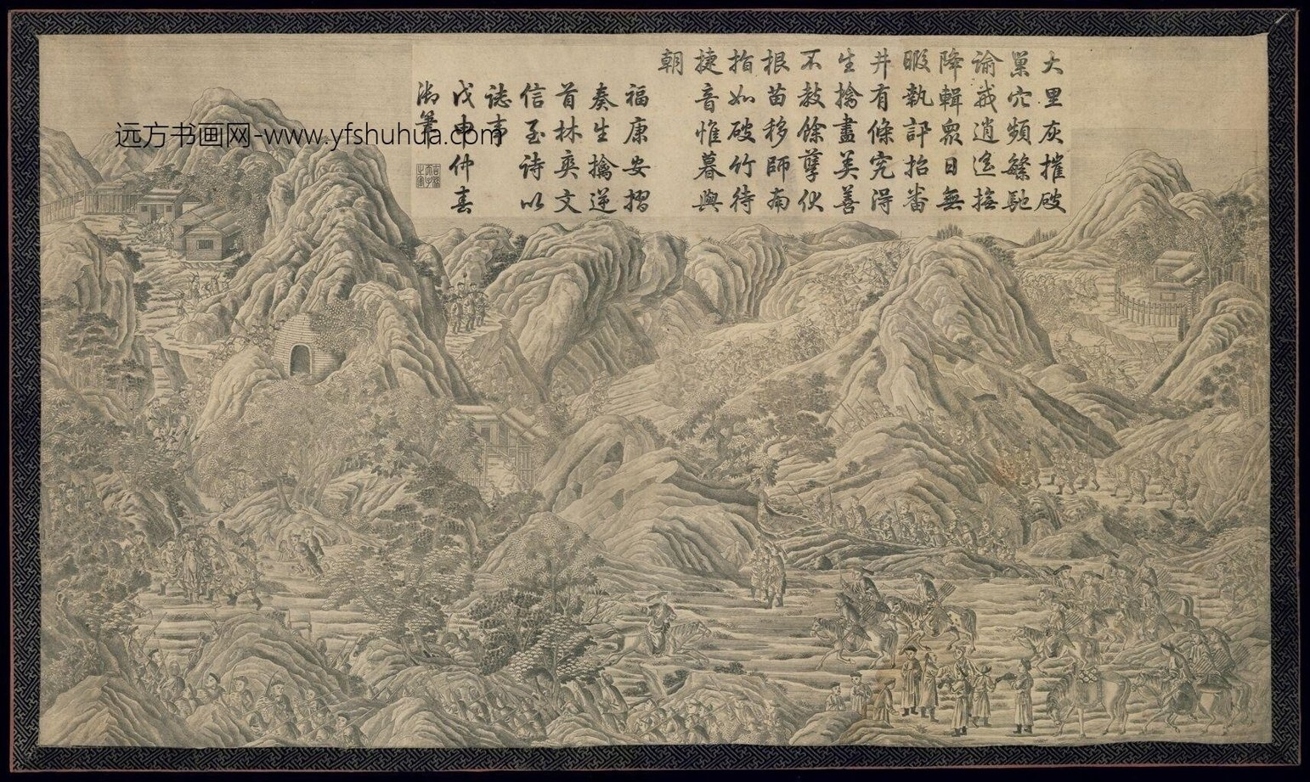 大里灰摧破
巢穴頻繁馳
諭戒逍遙撫
降輯衆日無
暇執訊招番
井有條究得
生擒盡美善
不教餘孽伏
根苗移師南
指如破竹待
捷音惟暮與
朝
福康安摺
奏生擒逆
首林爽文
信至詩以
誌事
戊申仲春
御筆
远方书画网-www.yfshuhua.com